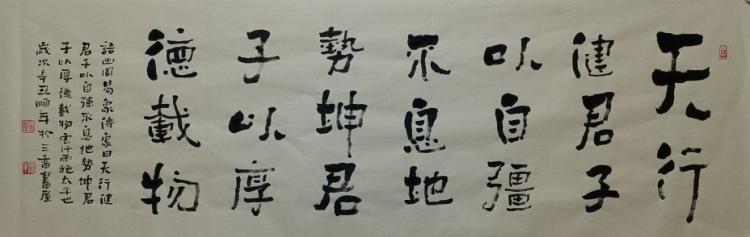 天行
健君子
以自彊
不息地
勢坤君
子以厚
德載物
語出周易象傳象曰天行健
君子以自強不息地勢坤君
子以厚德載物雲行雨施太平也
歲次辛丑 年於三 書屋